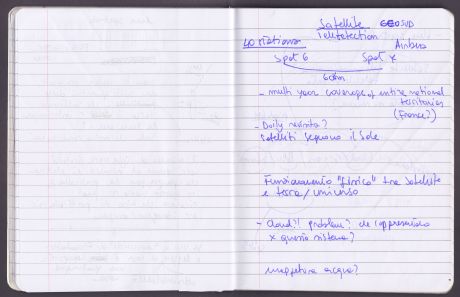 Satellite GEOSUD
Teledetection
Airbus
Spot 6 Spot
60cm
- multi year coverage of entire national
territories
(France?)
- Daily revisita?
Satelliti seguono il sole
Funzionamento "fisico" tra satellite
e terra/universo
- Cloud?! problem? che rappresentano
x questo sistema?
acqua?